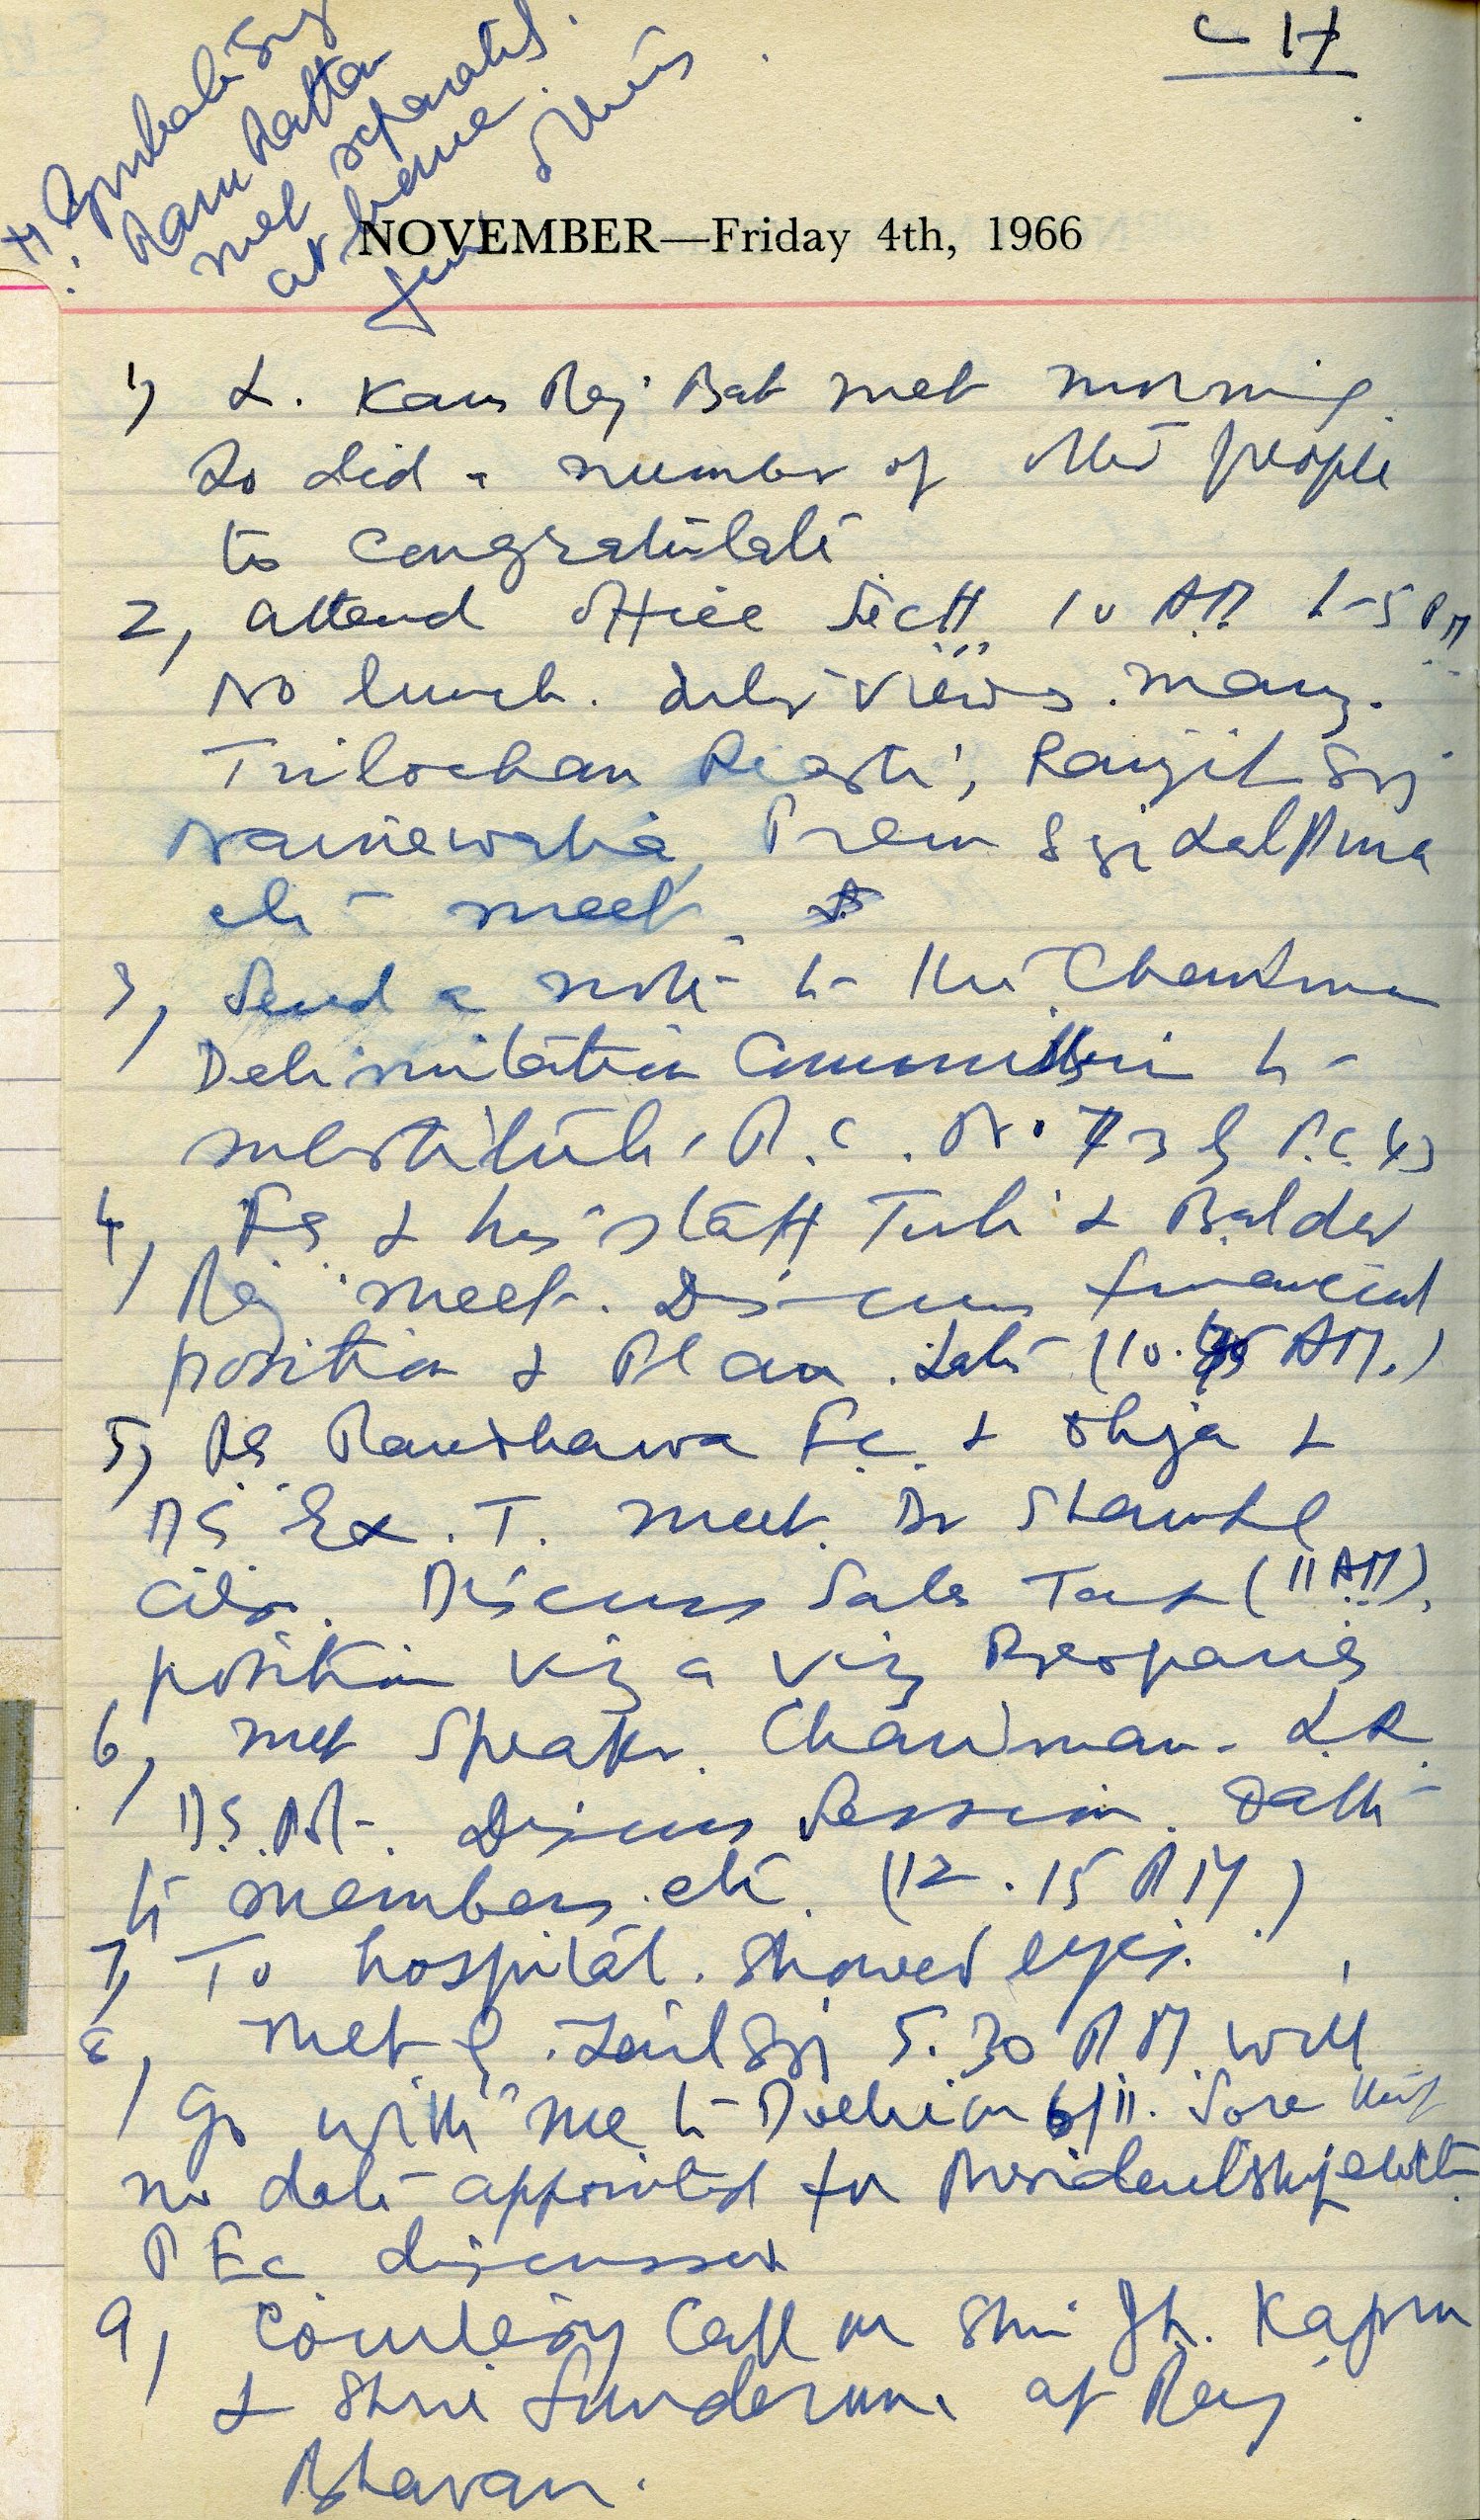 C H
Ram Rattan
met separately
at home.
NOVEMBER—Friday 4th, 1966
1) L. Kans Raj Bat met morning.
So did a number of other people
to congratulate
2, Attend office Sectt. 10 AM to 5 PM
No lunch. Interviews. many.
Trilochan Riasti, Ranjit Sgj
Nainewalia, Prem Sgj
etc meet
3, Send a note to the Chairman
Delimitation Commission to
substitute P.C. No. 73 by P.C. 43
4, F.S. & his staff Tuli & Baldev
Raj meet. Discuss financial
position & Plan. Late (10. AM.)
5, RS Randhawa F.C. & Ohja &
DS Ex. T. meet.
also. Discuss Sales Tax (11 AM).
position viz a viz Beoparis
6, met Speaker. Chairman. L.R.
D.S. Discuss Session. Oath
to members. etc. (12.15 PM)
7, To hospital. Showed eyes.
8, met G. Zail Sgj 5.30 PM. will
go with me to Delhi on 6/11. Sore that
no date appointed for Presidentship election
P E.C. discussed
9, Courtesy Call on Shri Jh. Kapur
& Shri Sunderum. at Raj
Bhavan.